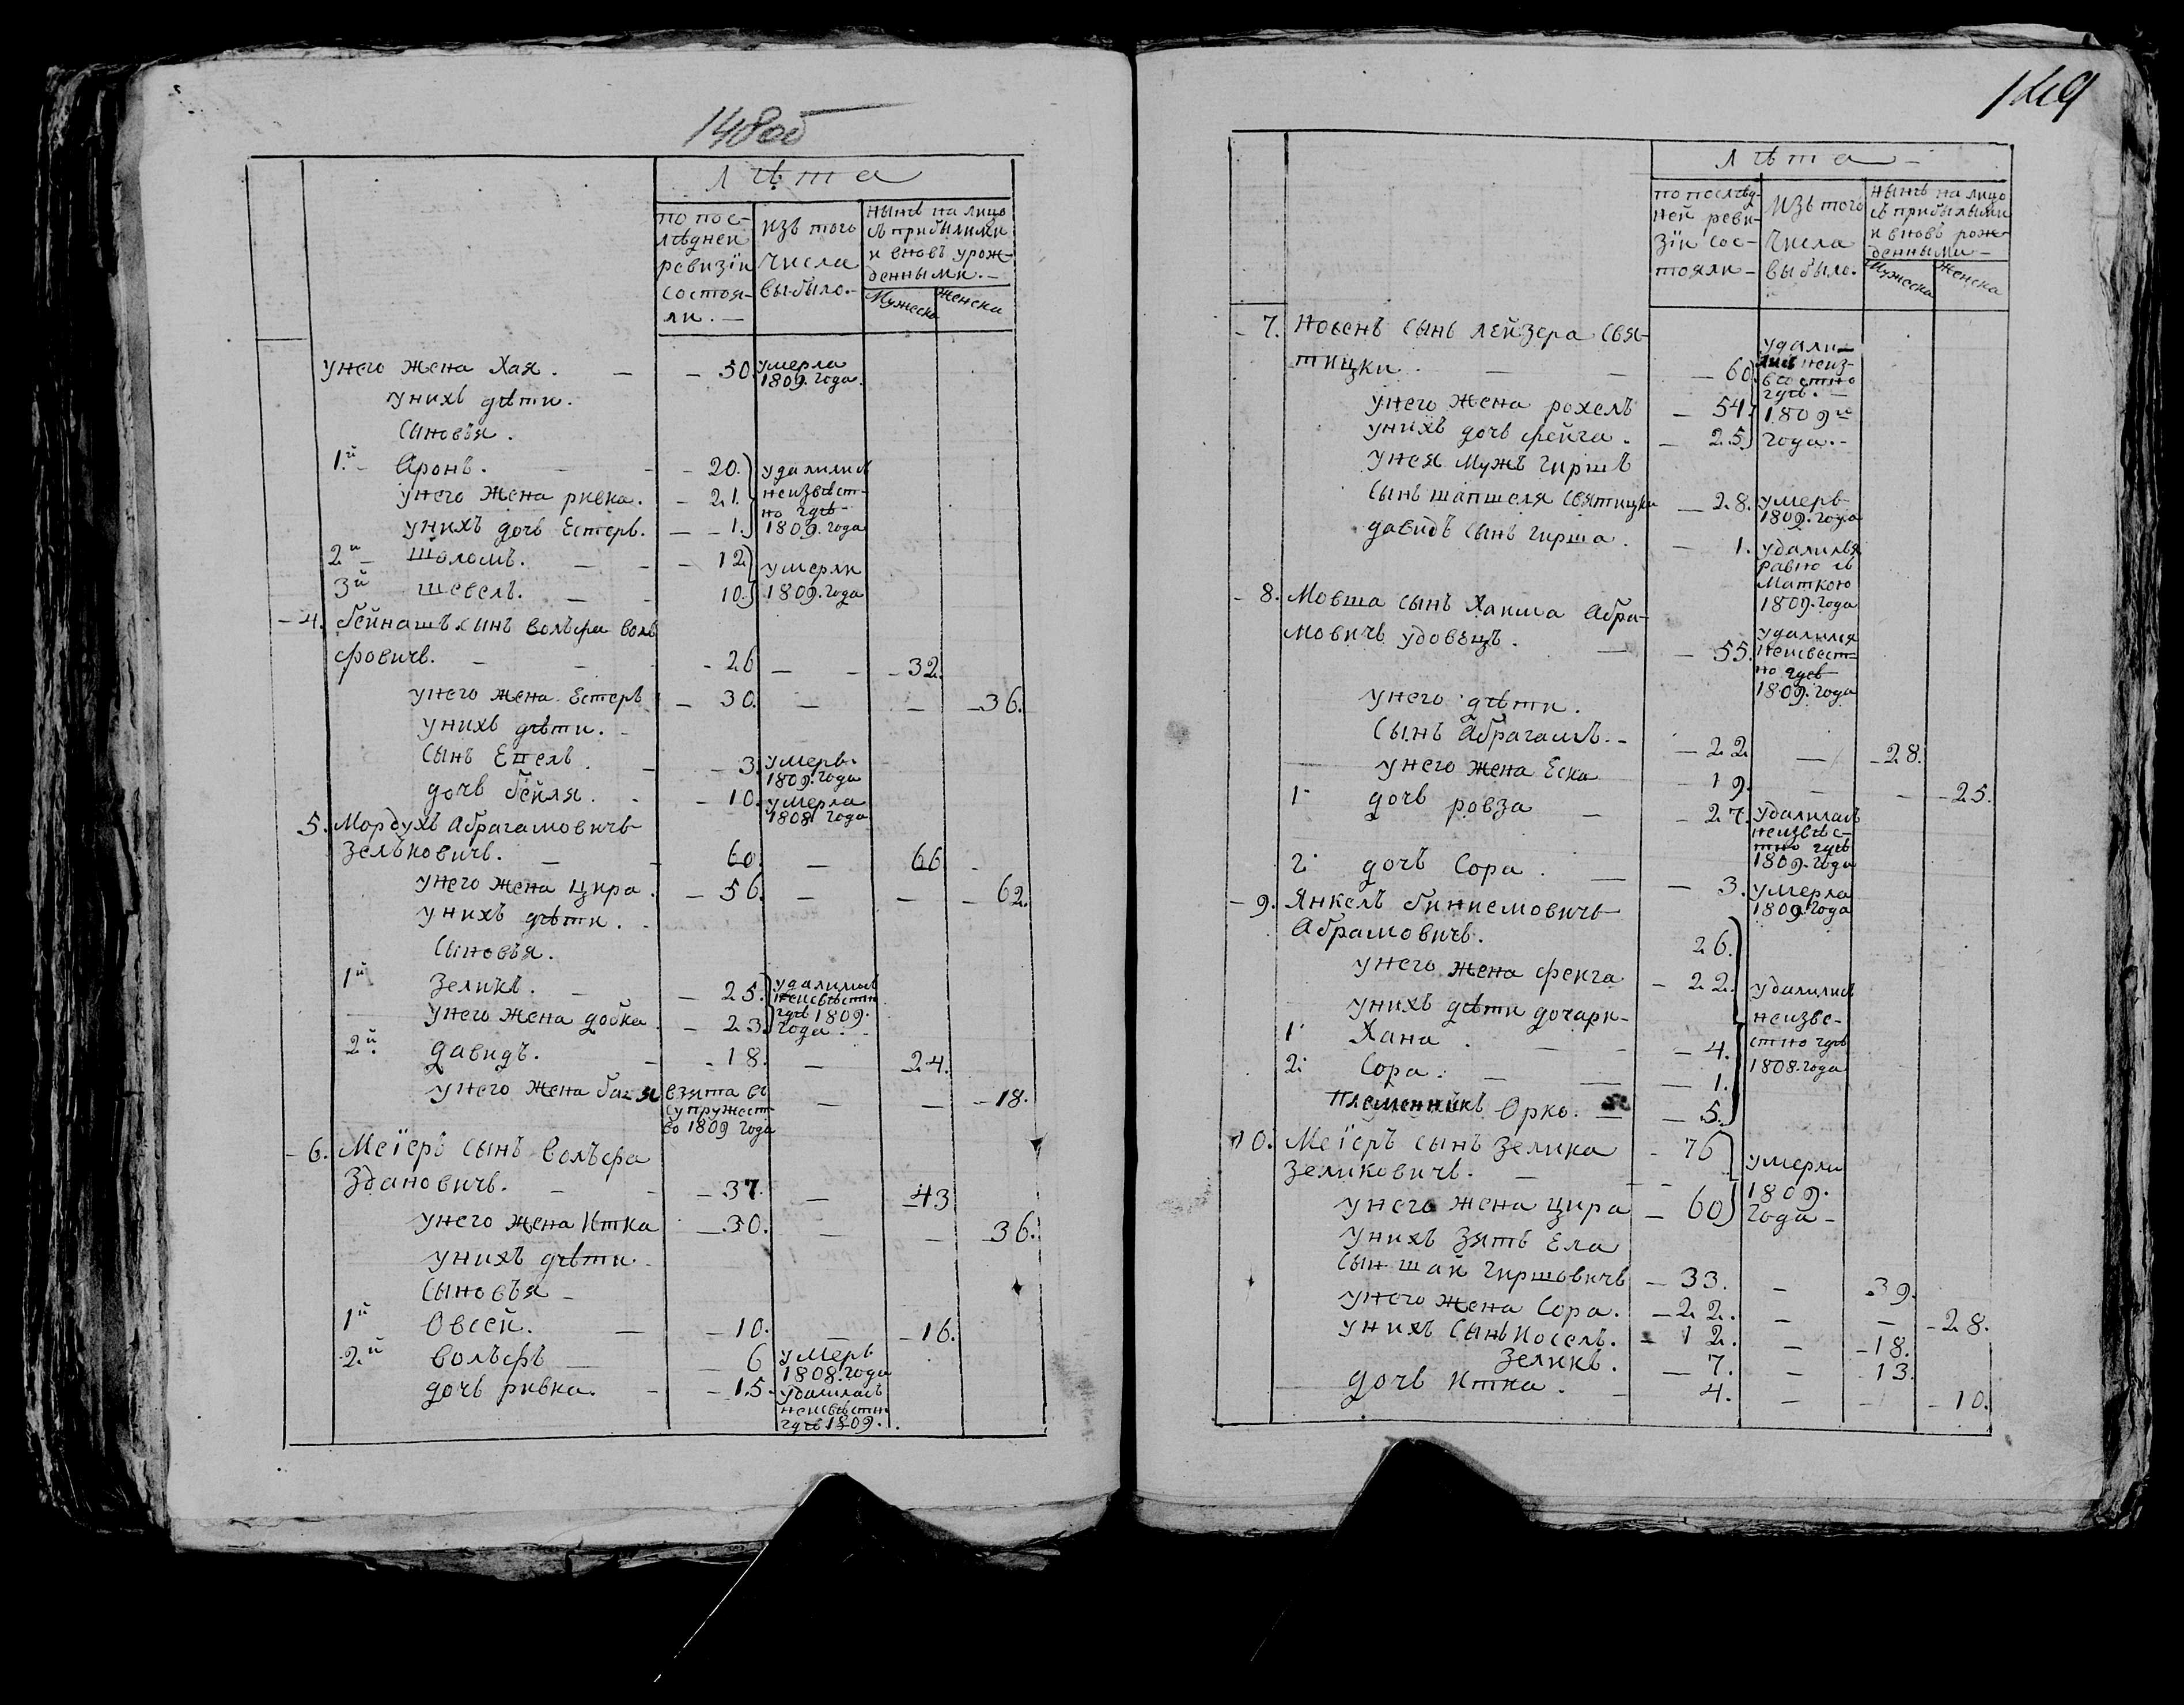 148об
Лѣта
по пос-
лѣдней
ревизіи
состоя-
ли. —
изъ того
числа
выбыло. —
нынѣ на лицо
съ прибылими
и вновъ урож-
денными. —
Мужеска
Женска
унего жена Хая. — — 50. умерла
1809. года.
унихъ дѣти.
Сыновъя.
1.й – Аронъ. – – – 20. удалилис
унего жена ривка. – 21. неизвѣст-
но гдѣ –
унихъ дочь Естерь. – – 1. 1809. года
2й – Шоломъ. – – – 12. умерли
3й Шевель. – – 10. 1809. года
– 4. Бейнашъ сынъ волъфа воль
фовичь. – – – 26 – – – 32.
унего жена Естерь – 30. – – – 36.
унихъ дѣти. –
Сынъ Епель. – – 3. умерь.
1809. года
дочь бейля. – – 10. умерла
1808 года
5. Мордухъ Абрагамовичь
Зельковичь. – – 60. – 66 –
унего жена Цира. – 56. – – – 62.
унихъ дѣти. –
Сыновъя.
1й Зеликъ. – – 25. удалилис
неисвѣстн
унего жена добка. – 23. гдѣ 1809.
года. –
2.й давидъ. – – 18. – 24.
унего жена бася взята въ – – – 18.
супружест-
во 1809 года
– 6. Меїеръ сынъ волъфа
Здановичь. – – – 37. – – 43
унего жена Итка – 30. – – 36.
унихъ дѣти –
Сыновъя –
1й Овсей. – – 10. – – 16.
2.й волъфъ – – 6 умерь
1808. года
дочь ривка. – – 15 – удалилась
неисвѣстн
гдѣ 1809. .
149
Лѣта –
по послѣд-
ней реви-
зіи сос-
тояли –
изъ того
числа
выбыло.
нынѣ на лицо
съ прибылыми
и вновь рож-
денными –
Мужеска
Женска
– 7. Ноѳенъ сынъ лейзера Свя-
тицки. – – – 60. удали-
лис неиз-
вѣстно
гдѣ. –
унего жена рохелъ – 54. 1809го
унихъ дочь фейга. – 25. года. –
унея мужъ гиршъ
сынъ шапшеля Святицки – 28. умеръ
1809. года
давидъ сынъ гирша. – 1. удалилъя
равно съ
Маткою
1809. года
– 8. Мовша сынъ Хаима Абра-
мовичь удовецъ. – – 55. удалился
неисвест-
но гдѣ
1809. года
унего дѣти.
Сынъ Абрагамъ. – – 22. – – 28.
унего жена Еска 19. – – – 25.
1. дочь ровза – – 27. удалилась
неизвѣс-
тно гдѣ
1809. года
2. дочъ Сора. – – 3. умерла
1809. года
– 9. Янкелъ биниемовичь
Абрамовичь. 26.
унего жена фейга – 22. удалилис
унихъ дѣти дочари – неизве-
1. Хана. – – – 4. стно гдѣ
2. Сора. – – – 1. 1808. года
племенникъ Орко. – – 5.
10. Меїеръ сынъ Зелика – 76 умерли
Зеликовичь. – – –
унего жена цира – 60 1809.
года –
унихъ зять Ела
сын шаи гиршовичь – 33. – 39.
унего жена Сора. – 22. – – – 28.
унихъ сынъ Иосель. – 12. – – 18.
Зеликъ. – 7. – 13.
дочь Итка. – 4. – – – 10.